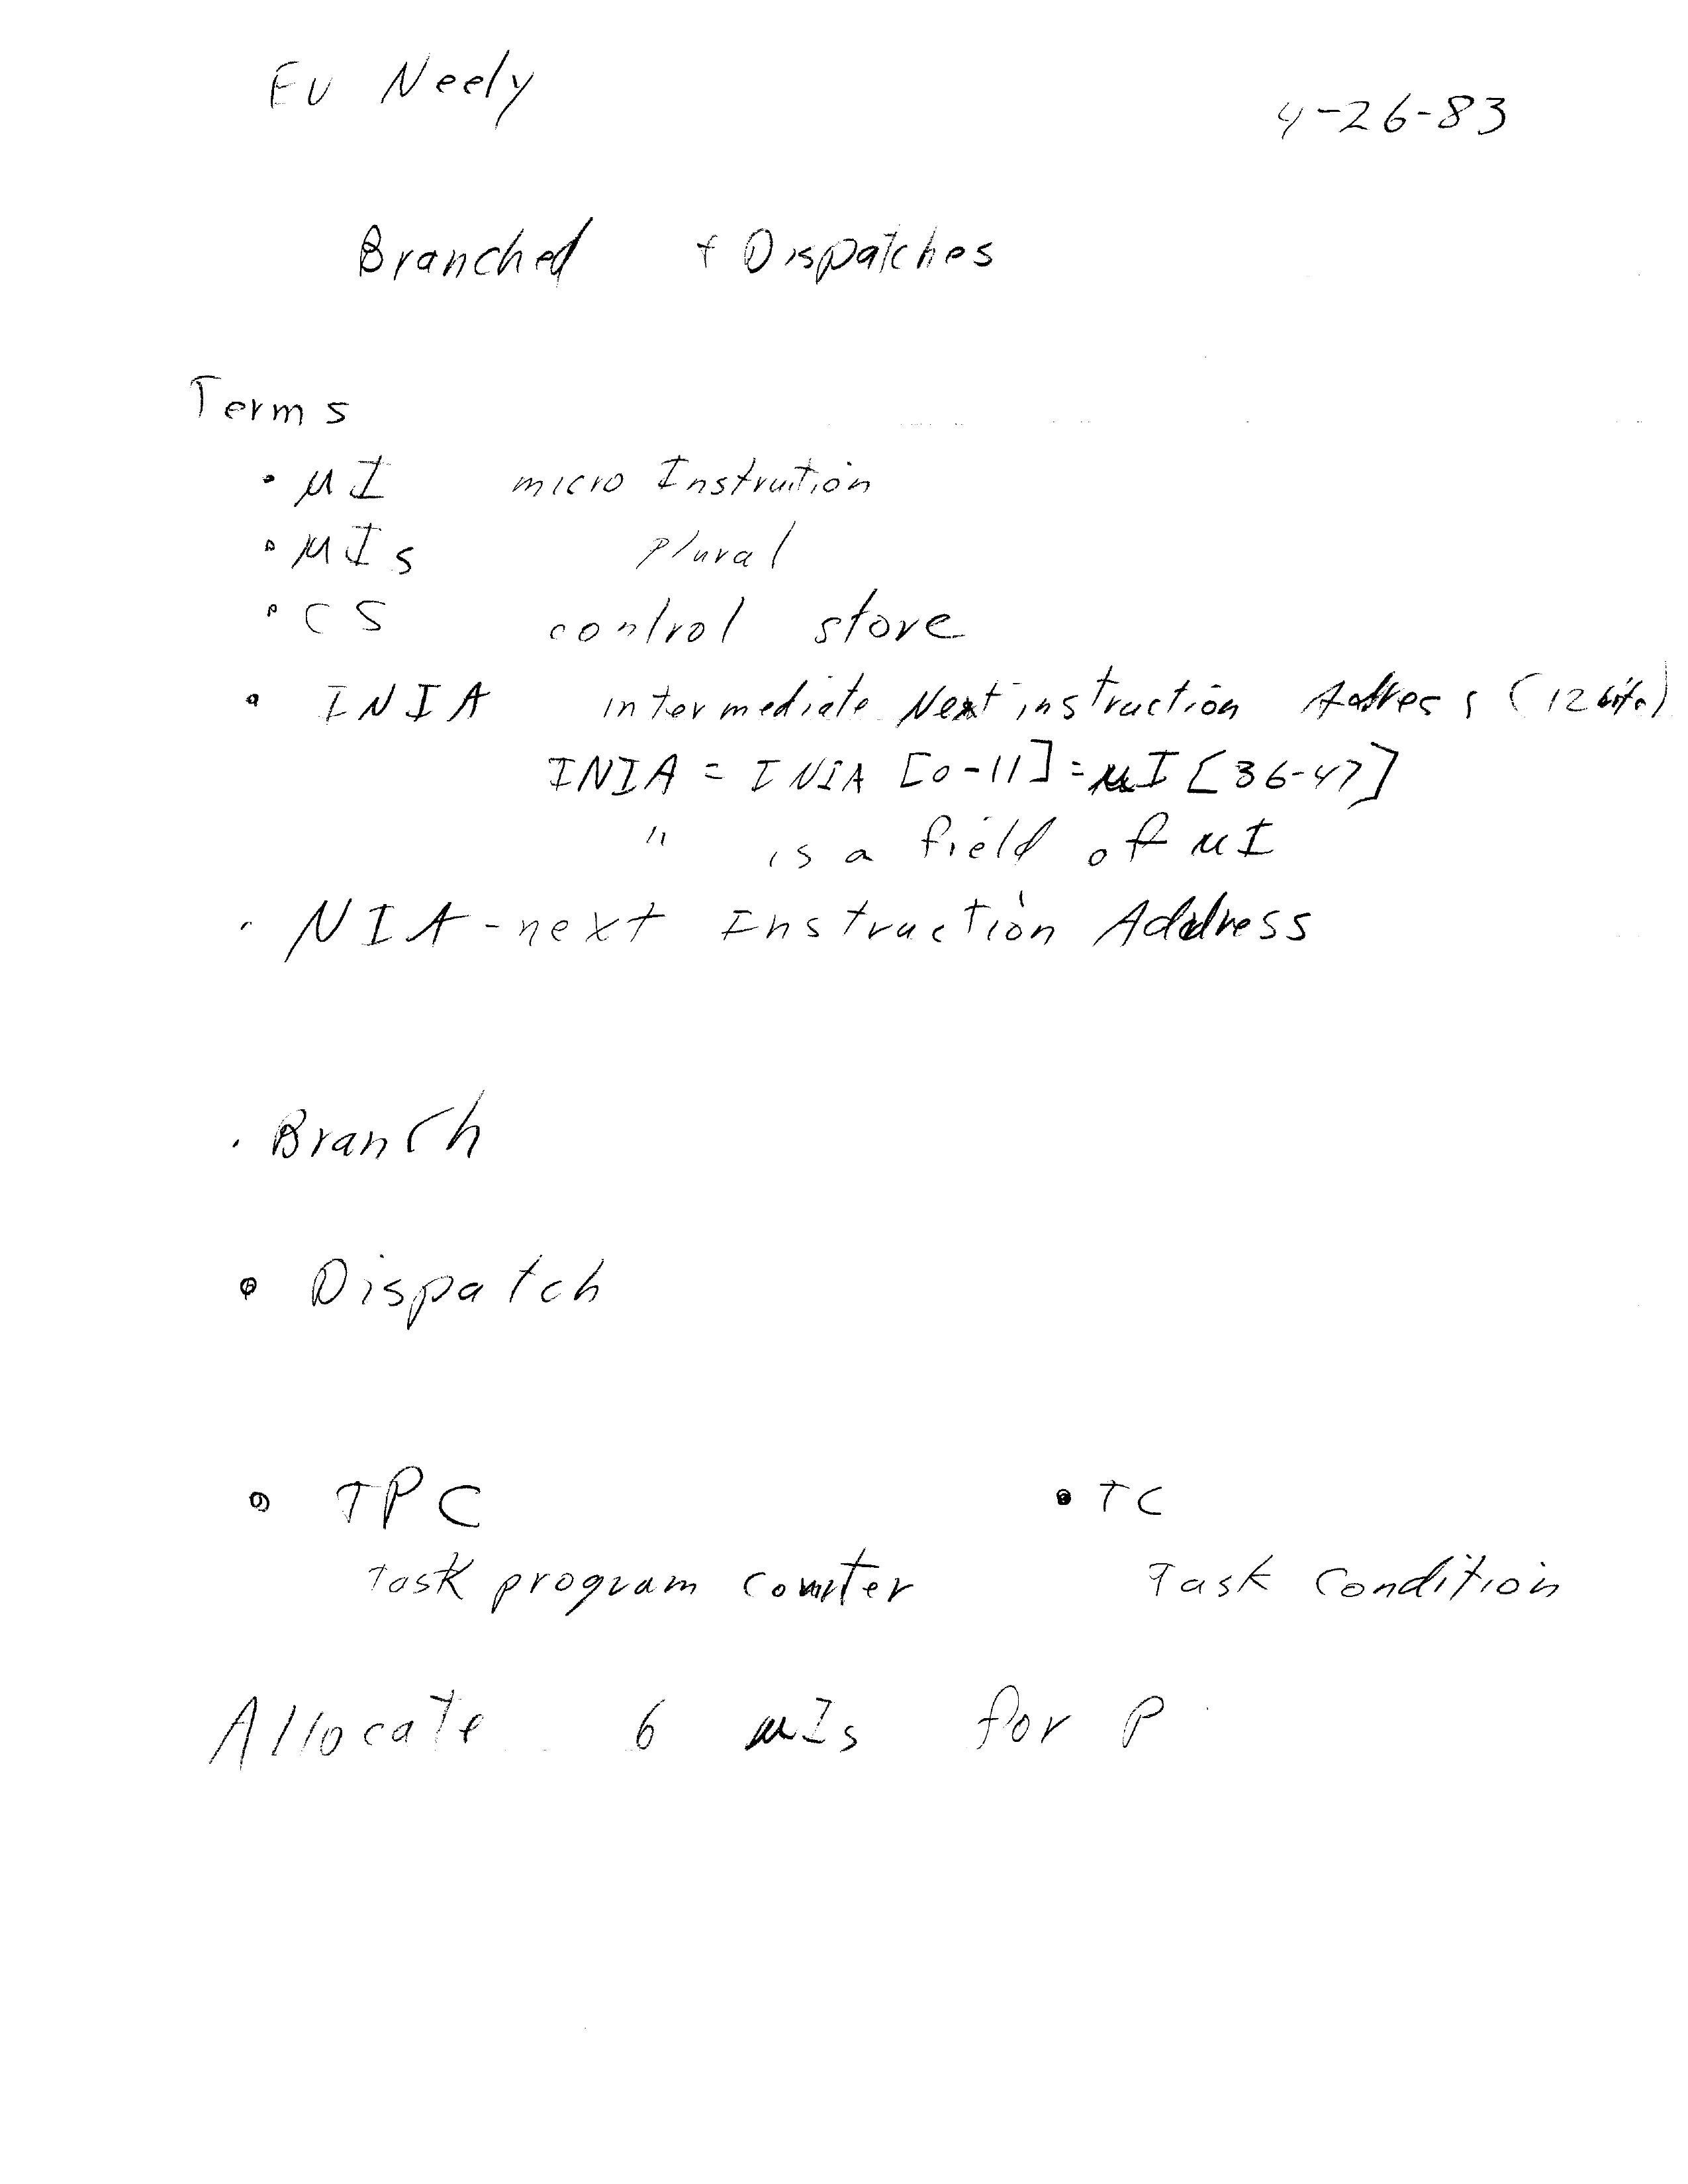 EV Neely
4-26-83
Branched + Dispatches
Terms
• μI micro Instruition
• μIs plural
• CS control store
• INIA intermediate Next instruction Address (12 bits)
INIA = INIA [0-11] = μI [36-47]
" is a field of μI
• NIA - next Instruction Address
• Branch
• Dispatch
• TPC • TC
Task program counter Task Condition
Allocate 6 μIs for P